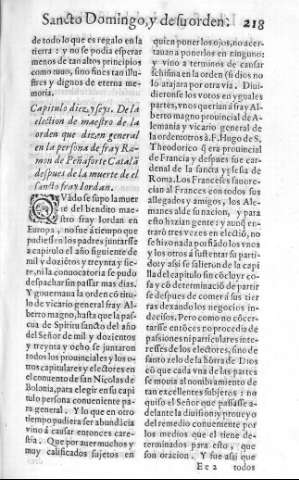 Sancto Domingo, y de su orden. 218
de todo lo que es regalo en la
tierra: y no se podia esperar
menos de tan altos principios
como tuuo, sino fines tan illu-
stres y dignos de eterna me-
moria.
Capitulo diez, y seys. De la
election de maestro de la
orden que dizen general
en la persona de fray Ra-
mon de Peñaforte Catalã
despues de la muerte del
sancto fray Iordan.
QVãdo se supo la muer
te del bendito mae-
stro fray Iordan en
Europa, no fue à tiempo que
pudiessen los padres juntarse
a capitulo el año siguiente de
mil y dozientos y treynta y sie-
te, ni la conuocatoria se pudo
despachar sin passar mas dias.
Y gouernaua la orden cõ titu-
lo de vicario general fray Al-
berto magno, hasta que la pas-
cua de Spiritu sancto del año
del Señor de mil y dozientos
y treynta y ocho se juntaron
todos los prouinciales y los o-
tros capitulares y electores en
el conuento de san Nicolas de
Bolonia, para elegir en su capi
tulo persona conueniente pa-
ra general. Y lo que en otro
tiempo pudiera ser abundãcia
vino à causar entonces care-
stia. Que por auer muchos y
muy calificados sujetos en
quien poner los ojos, no acer-
tauan a ponerlos en ninguno:
y vino a terminos de causar
schisma en la orden (si dios no
lo atajara por otra via. Diui-
dieronse los votos en yguales
partes, vnos querian à fray Al-
berto magno prouincial de A-
lemania y vicario general de
la orden: otros à F. Hugo de S.
Theodorico q̃ era prouincial
de Francia y despues fue car-
denal de la sancta yglesia de
Roma. Los Franceses fauore-
cian al Frances con todos sus
allegados y amigos, los Ale-
manes al de su nacion, y para
esto hazian gente: y aunq̃ en-
traró tres vezes en electiõ, no
se hizo nada porfiãdo los vnos
y los otros à sustentar su parti-
do: y assi se salieron de la capi
lla del capitulo sin cõcluyr co-
sa y cõ determinaciõ de partir
se despues de comer à sus tier
ras dexando los negocios in-
decisos. Pero como no cõcer-
tarse entõces no procede de
passiones ni particulares inte-
resses de los electores, sino de
santo zelo de la hõrra de Dios
cõ que cada vna de las partes
se mouia al nombramiento de
tan excellentes subjetos: no
quiso el Señor que passasse a-
delante la diuision: y proueyo
del remedio conueniente por
los medios que el tiene de-
terminados para esto, que
son oracion. Y fue assi que
Ee 2 todos